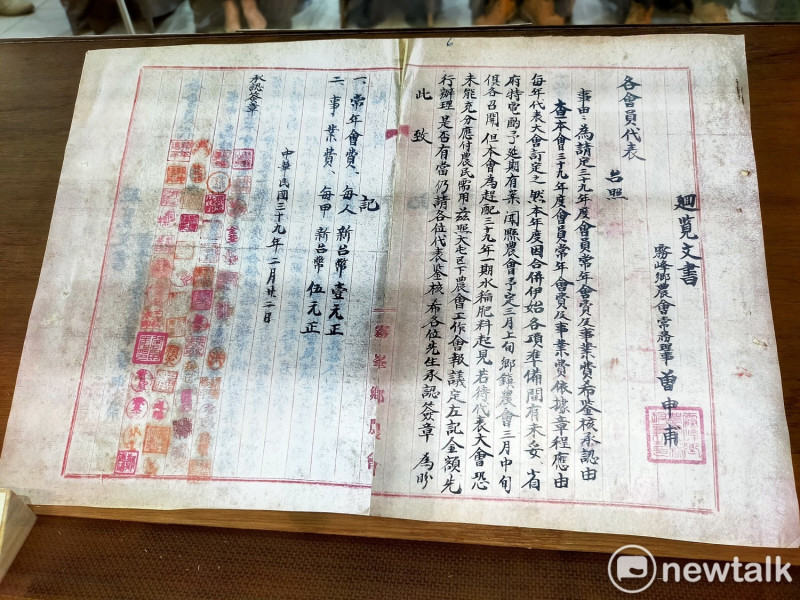 迴覽文書
霧峰鄉農會常務理事 曾申甫
各會員代表
台照
事由：為請定三十九年度會員常年會費及事業費希鑒核承認由
查本會三十九年度會員常年會費及事業費依據章程應由
每年代表大會訂定之 然本年度因合併伊始各項準備間有未妥 省
府特電酌予延期有案 聞縣農會予定三月上旬鄉鎮農會三月中旬
俱各召開 但本會為趕配三十九年一期水稻肥料起見 若待代表大會恐
未能充分應付農民需用 茲照大屯區下農會工作會報議定左記金額先
行辦理 是否有當仍請各位代表鑒核 希各位先生承認簽章 為盼
此致
記
一、常年會費、每人新台幣壹元正
二、事業費、每甲新台幣伍元正
中華民國三十九年二月廿二日
承認簽章
霧峯鄉農會
6
newtalk